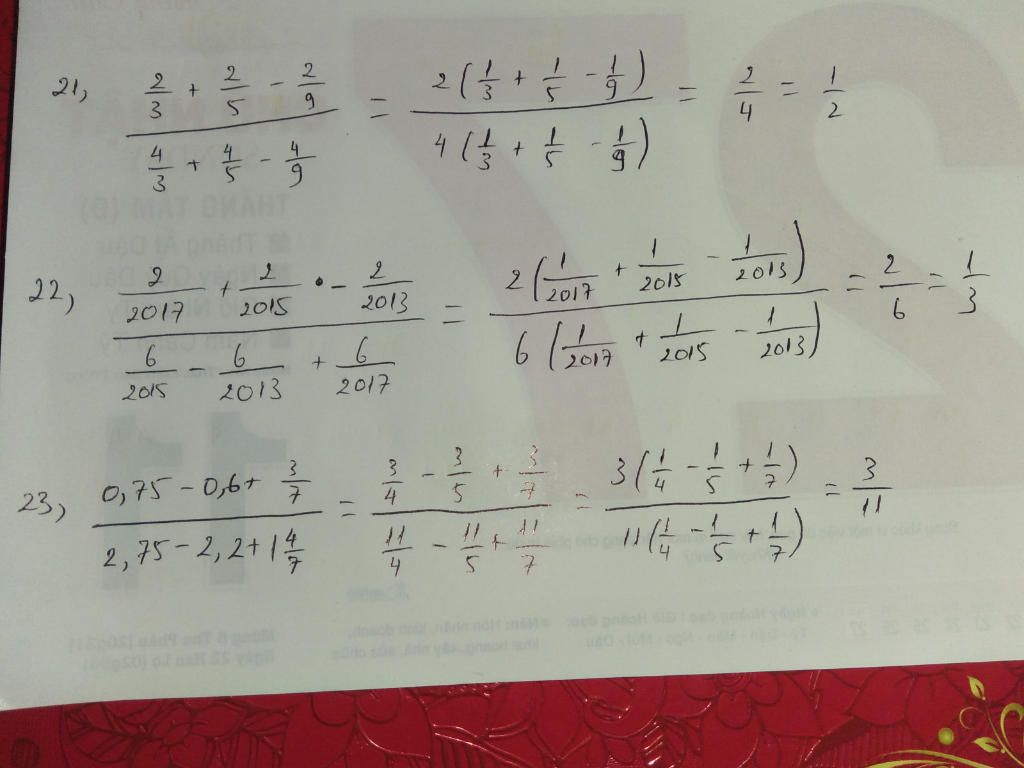 21, (2/3 + 2/5 - 2/9)/(4/3 + 4/5 - 4/9) = 2(1/3 + 1/5 - 1/9)/4(1/3 + 1/5 - 1/9) = 2/4 = 1/2
22, (2/2017 + 2/2015 • - 2/2013)/(6/2015 - 6/2013 + 6/2017) = 2(1/2017 + 1/2015 - 1/2013)/6(1/2017 + 1/2015 - 1/2013) = 2/6 = 1/3
23, (0,75 - 0,6 + 3/7)/(2,75 - 2,2 + 1 4/7) = (3/4 - 3/5 + 3/7)/(11/4 - 11/5 + 11/7) = 3(1/4 - 1/5 + 1/7)/11(1/4 - 1/5 + 1/7) = 3/11